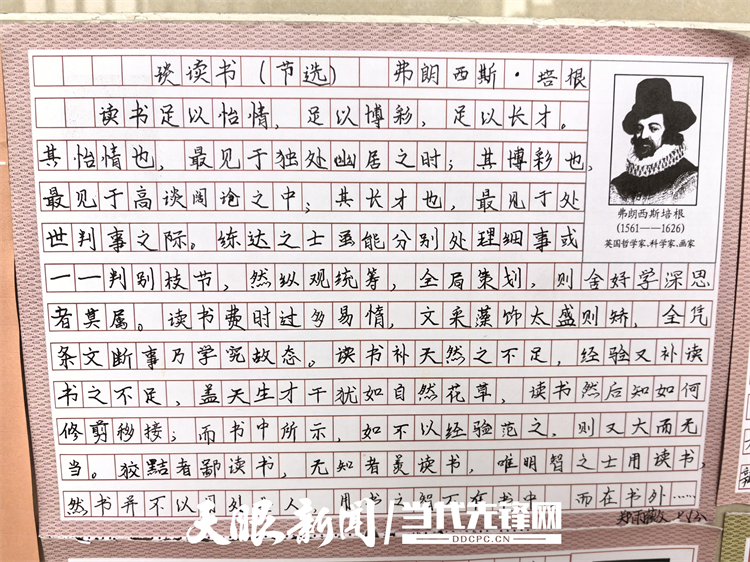 谈读书(节选) 弗朗西斯·培根
读书足以怡情,足以博彩,足以长才。
其怡情也,最见于独处幽居之时;其博彩也,
最见于高谈阔论之中;其长才也,最见于处
世判事之际。练达之士虽能分别处理细事或
一一判别枝节,然纵观统筹,全局策划,则舍好学深思
者莫属。读书费时过多易惰,文采藻饰太盛则矫,全凭
条文断事乃学究故态。读书补天然之不足,经验又补读
书之不足,盖天生才干犹如自然花草,读书然后知如何
修剪移接;而书中所示,如不以经验范之,则又大而无
当。狡黠者鄙读书,无知者羡读书,唯明智之士用读书,
然书并不以用处人,用书之智不在书中,而在书外……
弗朗西斯培根
(1561——1626)
英国哲学家、科学家、画家
天眼新闻/当代先锋网
DDCPC.CN